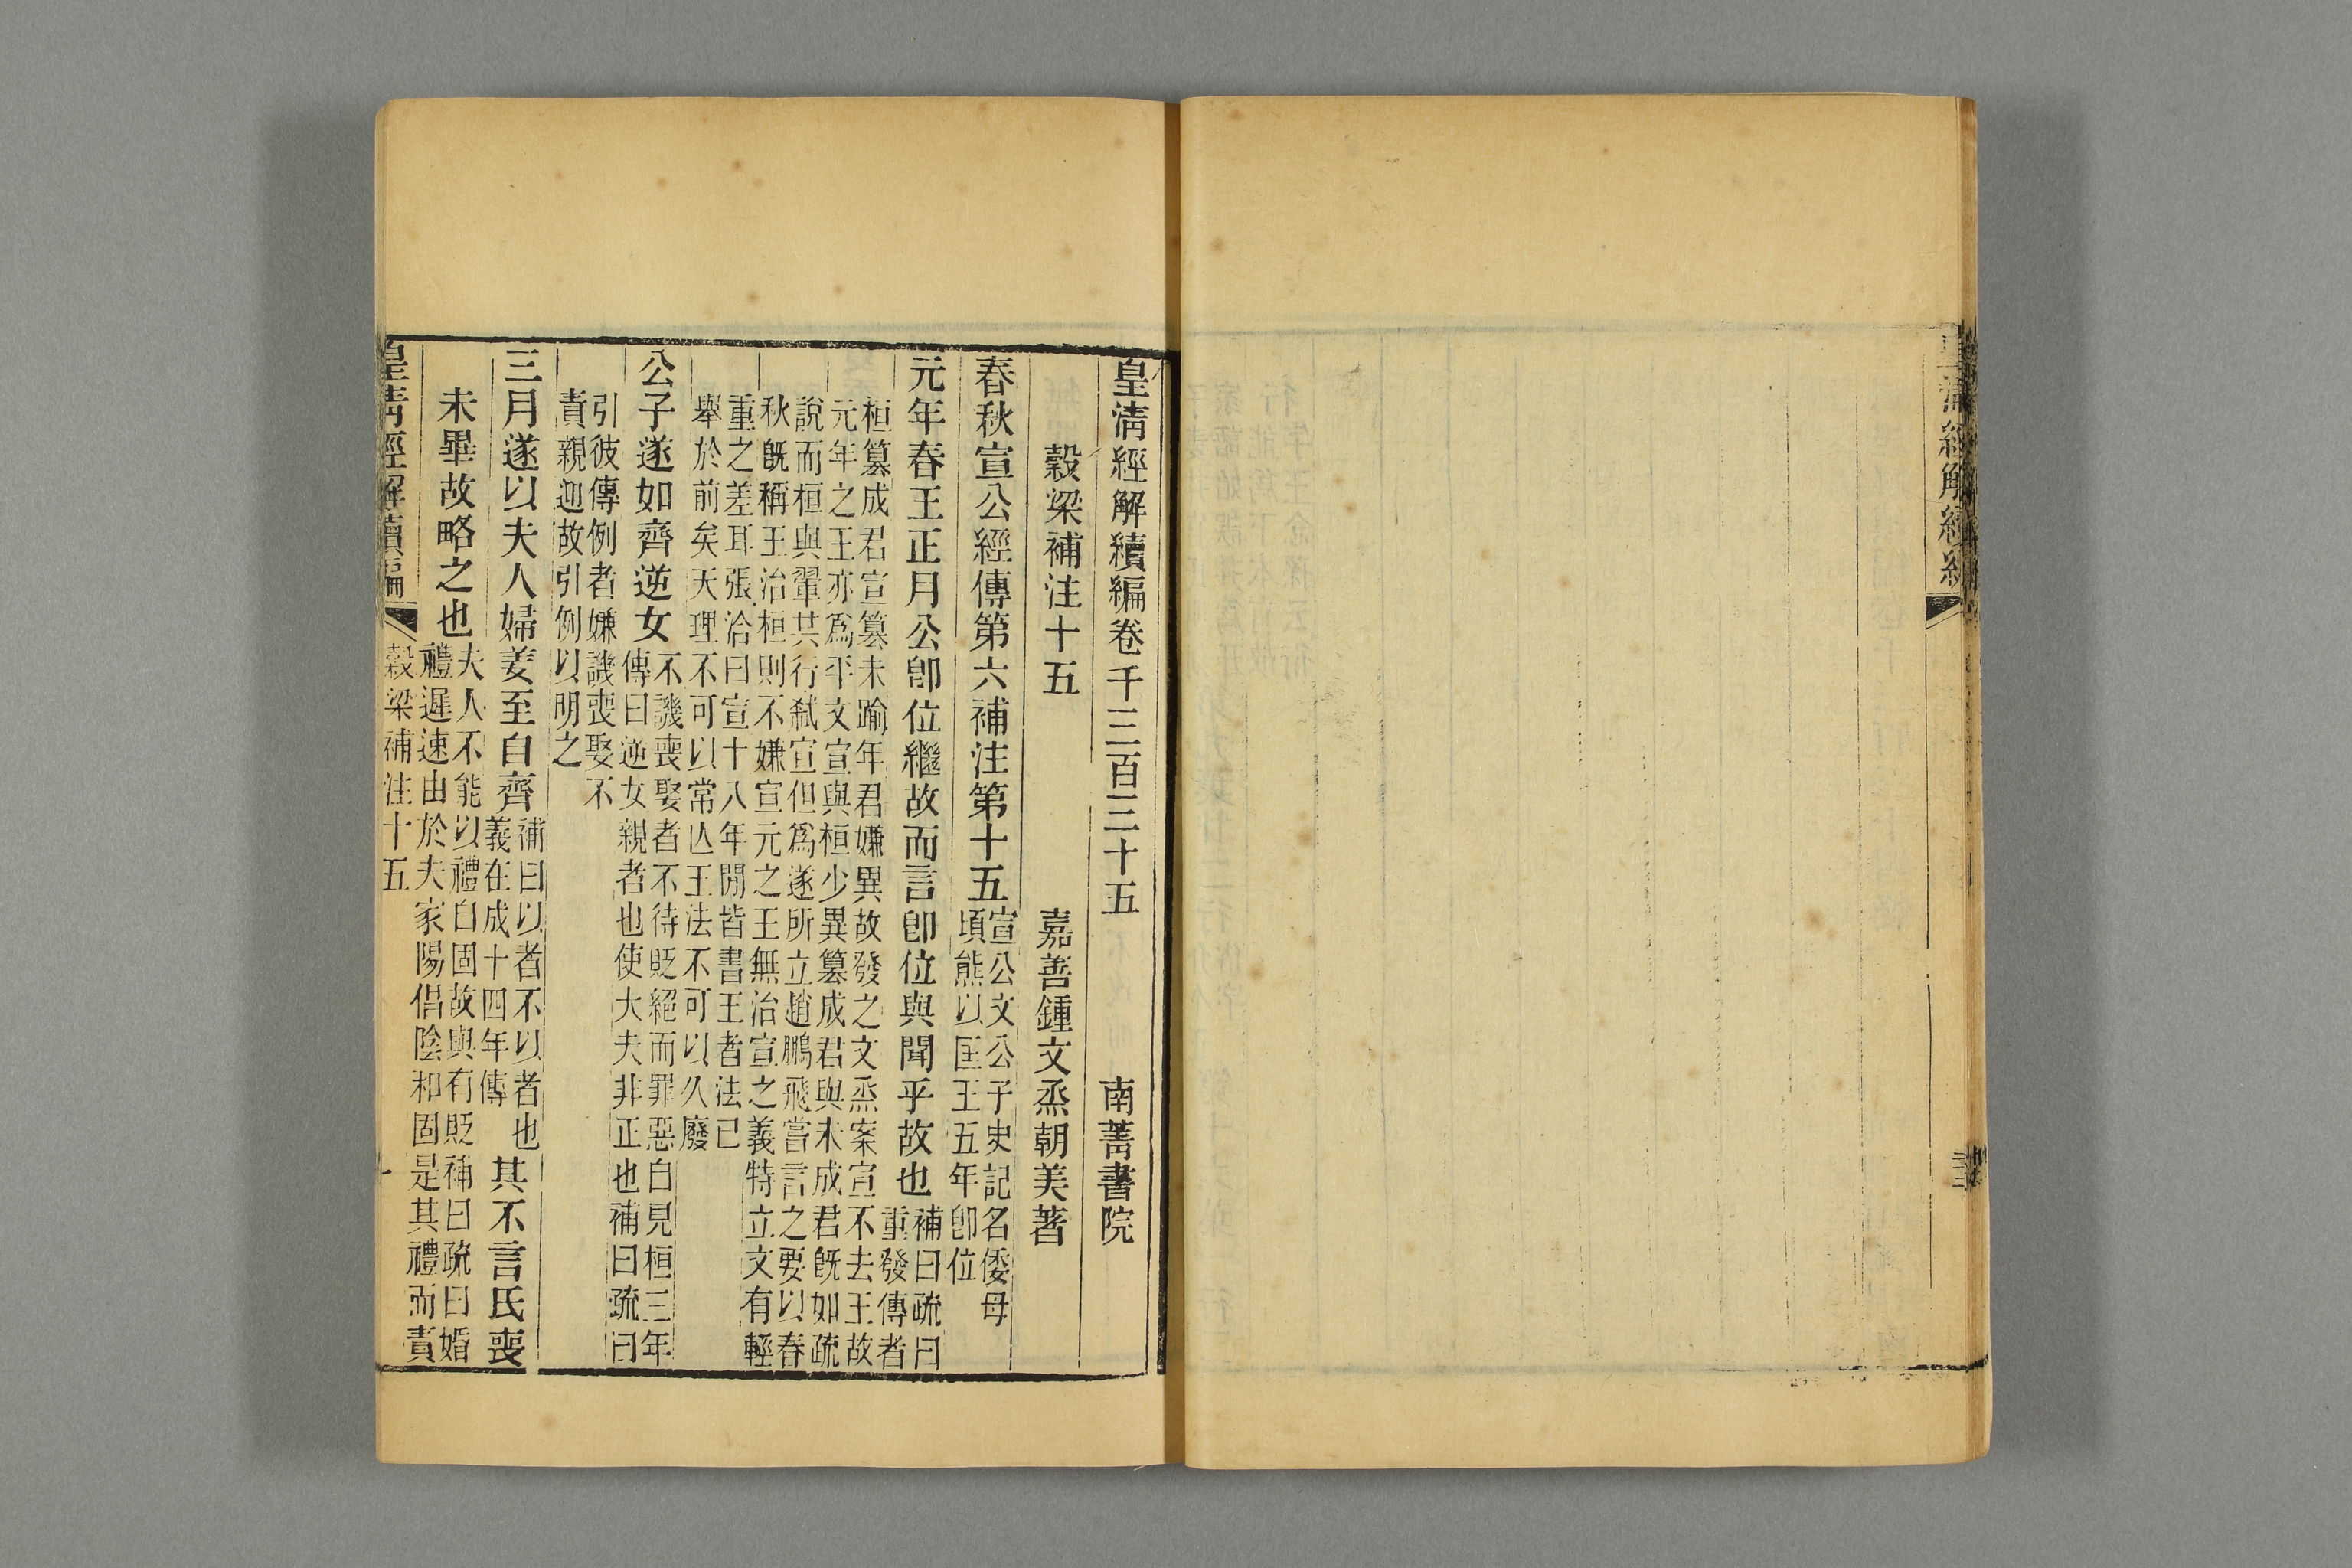 皇清經解續編卷千三百三十五　南菁書院
穀梁補注十五　嘉善鍾文烝朝美著
春秋宣公經傳第六補注第十五
宣公文公子史記名倭母
頃熊以匡王五年卽位
元年春王正月公卽位繼故而言卽位與聞乎故也
補曰疏曰
重發傳者
桓篡成君宣篡未踰年君嫌異故發之文烝案宣不去王故
元年之王亦爲平文宣與桓少異篡成君與未成君旣如疏
說而桓與翬共行弒宣但爲遂所立趙鵬飛嘗言之要以春
秋旣稱王治桓則不嫌宣元之王無治宣之義特立文有輕
重之差耳張洽曰宣十八年閒皆書王者法已
舉於前矣天理不可以常亾王法不可以久廢
公子遂如齊逆女
不譏喪娶者不待貶絕而罪惡自見桓三年
傳曰逆女親者也使大夫非正也補曰疏曰
引彼傳例者嫌譏喪娶不
責親迎故引例以明之
三月遂以夫人婦姜至自齊
補曰以者不以者也
義在成十四年傳
其不言氏喪
未畢故略之也
夫人不能以禮自固故與有貶補曰疏曰婚
禮遲速由於夫家陽倡陰和固是其禮而責
皇清經解續編　穀梁補注十五　一